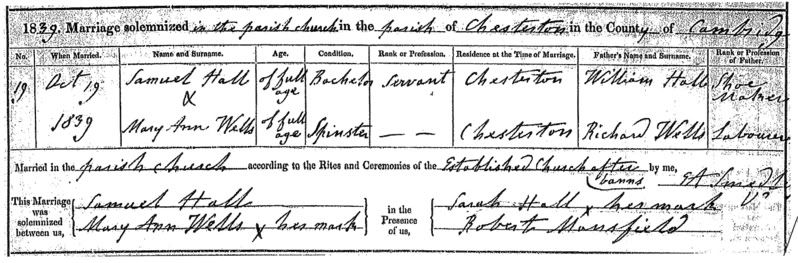 1839. Marriage solemnized in the parish church in the parish of Chesterton in the County of Cambridge
No. When Married. Name and Surname. Age. Condition. Rank or Profession. Residence at the Time of Marriage. Father's Name and Surname. Rank or Profession of Father.
19 Oct 19 Samuel Hall of full age Bachelor Servant Chesterton William Hall Shoe Maker
X
1839 Mary Ann Wells of full age Spinster — — Chesterton Richard Wells Labourer
Married in the parish church according to the Rites and Ceremonies of the Established Church after banns by me,
This Marriage was solemnized between us,
Samuel Hall
Mary Ann Wells x her mark
in the Presence of us,
Sarah Hall x her mark
Robert Mansfield